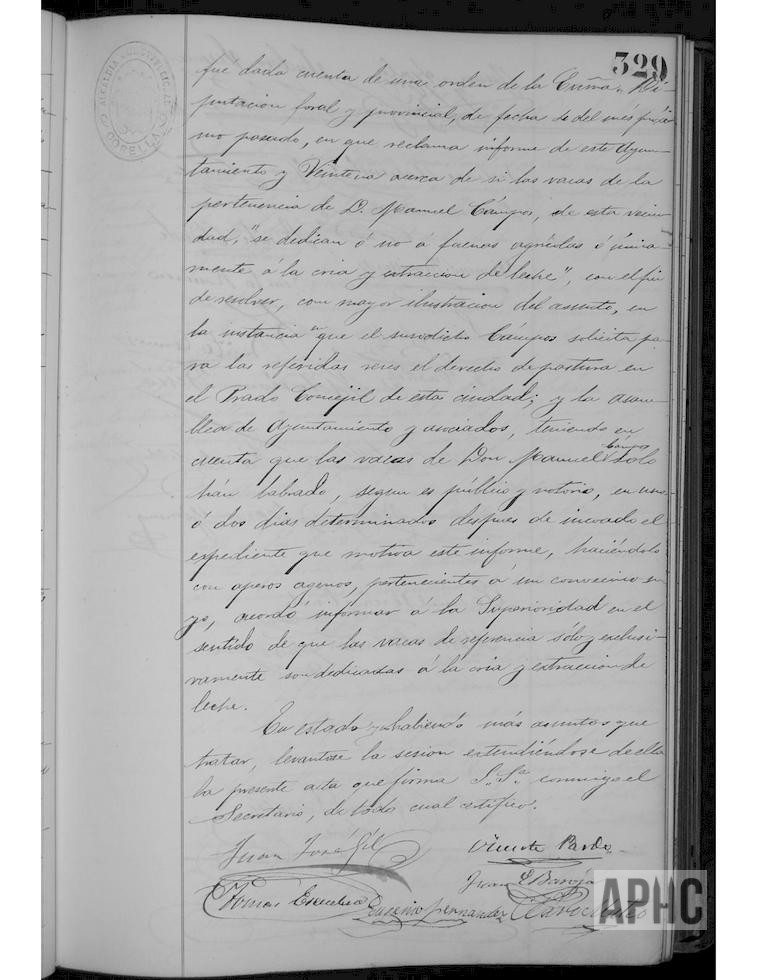 329
ALCALDIA
fué dada cuenta de una orden de la Excma. Di-
putacion foral y provincial, de fecha de del més próxi
mo pasado, en que reclama informe de este Ayun-
tamiento y Veintena acerca de si las vacas de la
pertenencia de D. Manuel Cámpos, de esta vecin
dad, "se dedican ó no á faenas agrícolas ó única
mente á la cria y extraccion de leche", con el fin
de resolver, con mayor ilustracion del asunto, en
la instancia en que el susodicho Cámpos solicita pa-
ra las referidas reses el derecho de pastura en
el Prado Concejil de esta ciudad; y la asam-
blea de Ayuntamiento y asociados, teniendo en
cuenta que las vacas de Don Manuel Cámpos sólo
hán labrado, segun es público y notorio, en uno
ó dos dias determinados despues de incoado el
expediente que motiva este informe, haciéndolo
con aperos agenos, pertenecientes á un convecino su
yo, acordó informar á la Superioridad en el
sentido de que las vacas de referencia sólo y exclusi-
vamente son dedicadas á la cria y extraccion de
leche.
En estado y habiendo más asuntos que
tratar, levantose la sesion extendiéndose de ella
la presente acta que firma S. Sª. conmigo el
Secretario, de todo cual certifico.
Juan José Gil
Vicente Pardo
Juan
Tomás
Eugenio Fernandez
APHC